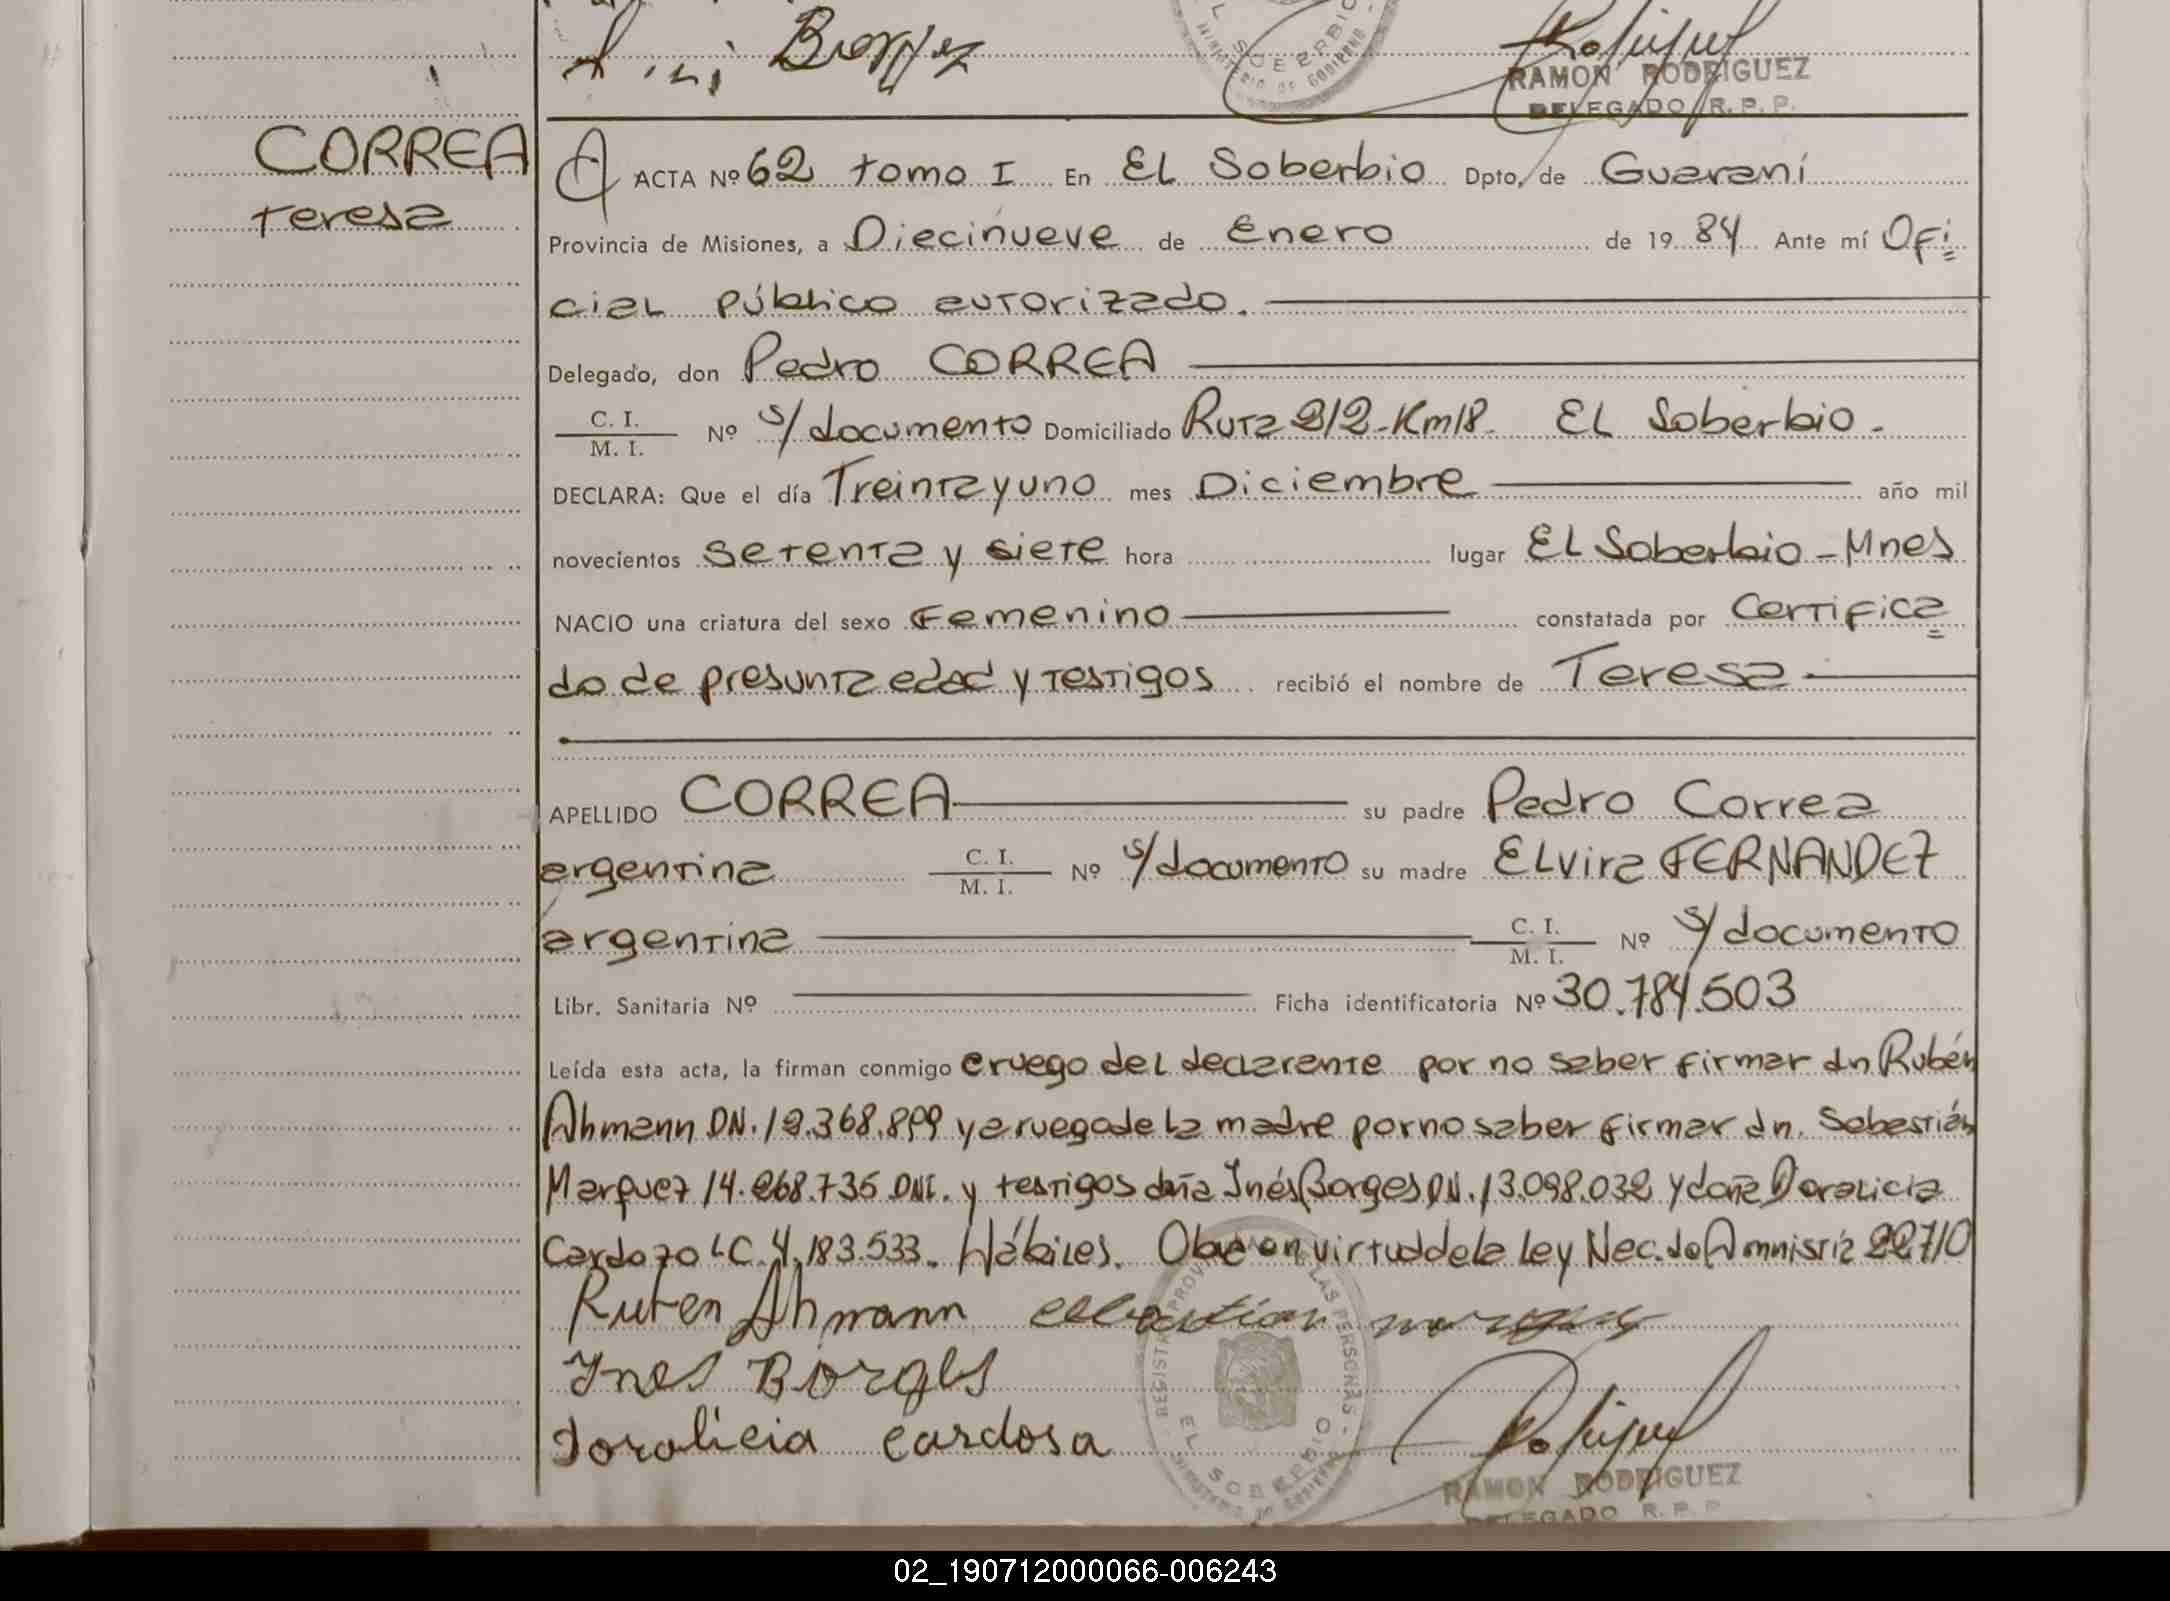 Borges
EL SOBERBIO
MINISTERIO DE GOBIERNO
RAMON RODRIGUEZ
DELEGADO R. P. P.
CORREA
Teresa
ACTA Nº 62 tomo I En EL Soberbio Dpto, de Guaraní
Provincia de Misiones, a Diecinueve de Enero de 19 84 Ante mí Ofi
cial público autorizado.
Delegado, don Pedro CORREA
C. I.
M. I. Nº s/documento Domiciliado Ruta 212-Km18 EL Soberbio-
DECLARA: Que el día Treinta y uno mes Diciembre año mil
novecientos setenta y siete hora lugar EL Soberbio-Mnes
NACIO una criatura del sexo Femenino constatada por Certifica
do de presunta edad y testigos recibió el nombre de Teresa
APELLIDO CORREA su padre Pedro Correa
argentina C. I. M. I. Nº s/documento su madre ELvira FERNANDEZ
argentina C. I. M. I. Nº s/documento
Libr. Sanitaria Nº Ficha identificatoria Nº 30.784.503
Leída esta acta, la firman conmigo a ruego del declarante por no saber firmar dn Rubén
Ahmann DN. 12.368.899 y a ruego de la madre por no saber firmar dn. Sebastián
Marquez 14.268.735 DNI. y testigos doña Inés Borges DN. 13.098.032 y doña Doralicia
Cardozo LC. 4.183.533. Hábiles. Obra en virtud de la Ley Nac. de Amnistía 22710
Ruben Ahmann
Ines Borges
Doralicia Cardosa
REGISTRO PROVINCIAL DE LAS PERSONAS
EL SOBERBIO
MINISTERIO DE GOBIERNO
RAMON RODRIGUEZ
DELEGADO R. P. P
02_190712000066-006243